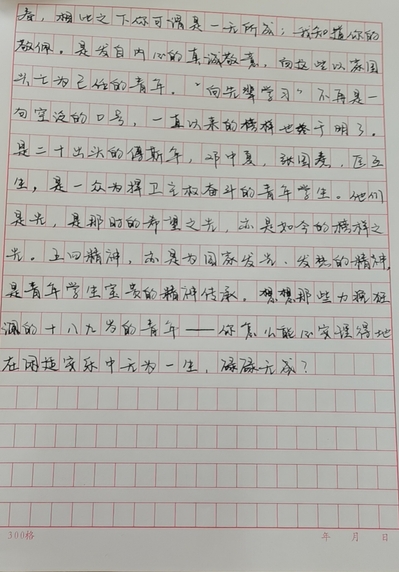 者，相比之下你可谓是一无所成；我知道你的
敬佩，是发自内心的真诚敬意，向这些以家国
兴亡为己任的青年。“向先辈学习”不再是一
句空泛的口号，一直以来的榜样也终于明了。
是二十出头的傅斯年，邓中夏，张国焘，匡互
生，是一众为捍卫主权奋斗的青年学生。他们
是光，是那时的希望之光，亦是如今的榜样之
光。五四精神，亦是为国家发光、发热的精神，
是青年学生宝贵的精神传承。想想那些力挽狂
澜的十八九岁的青年——你怎么能心安理得地
在困 安乐中无为一生，碌碌无成？
300格
年 月 日